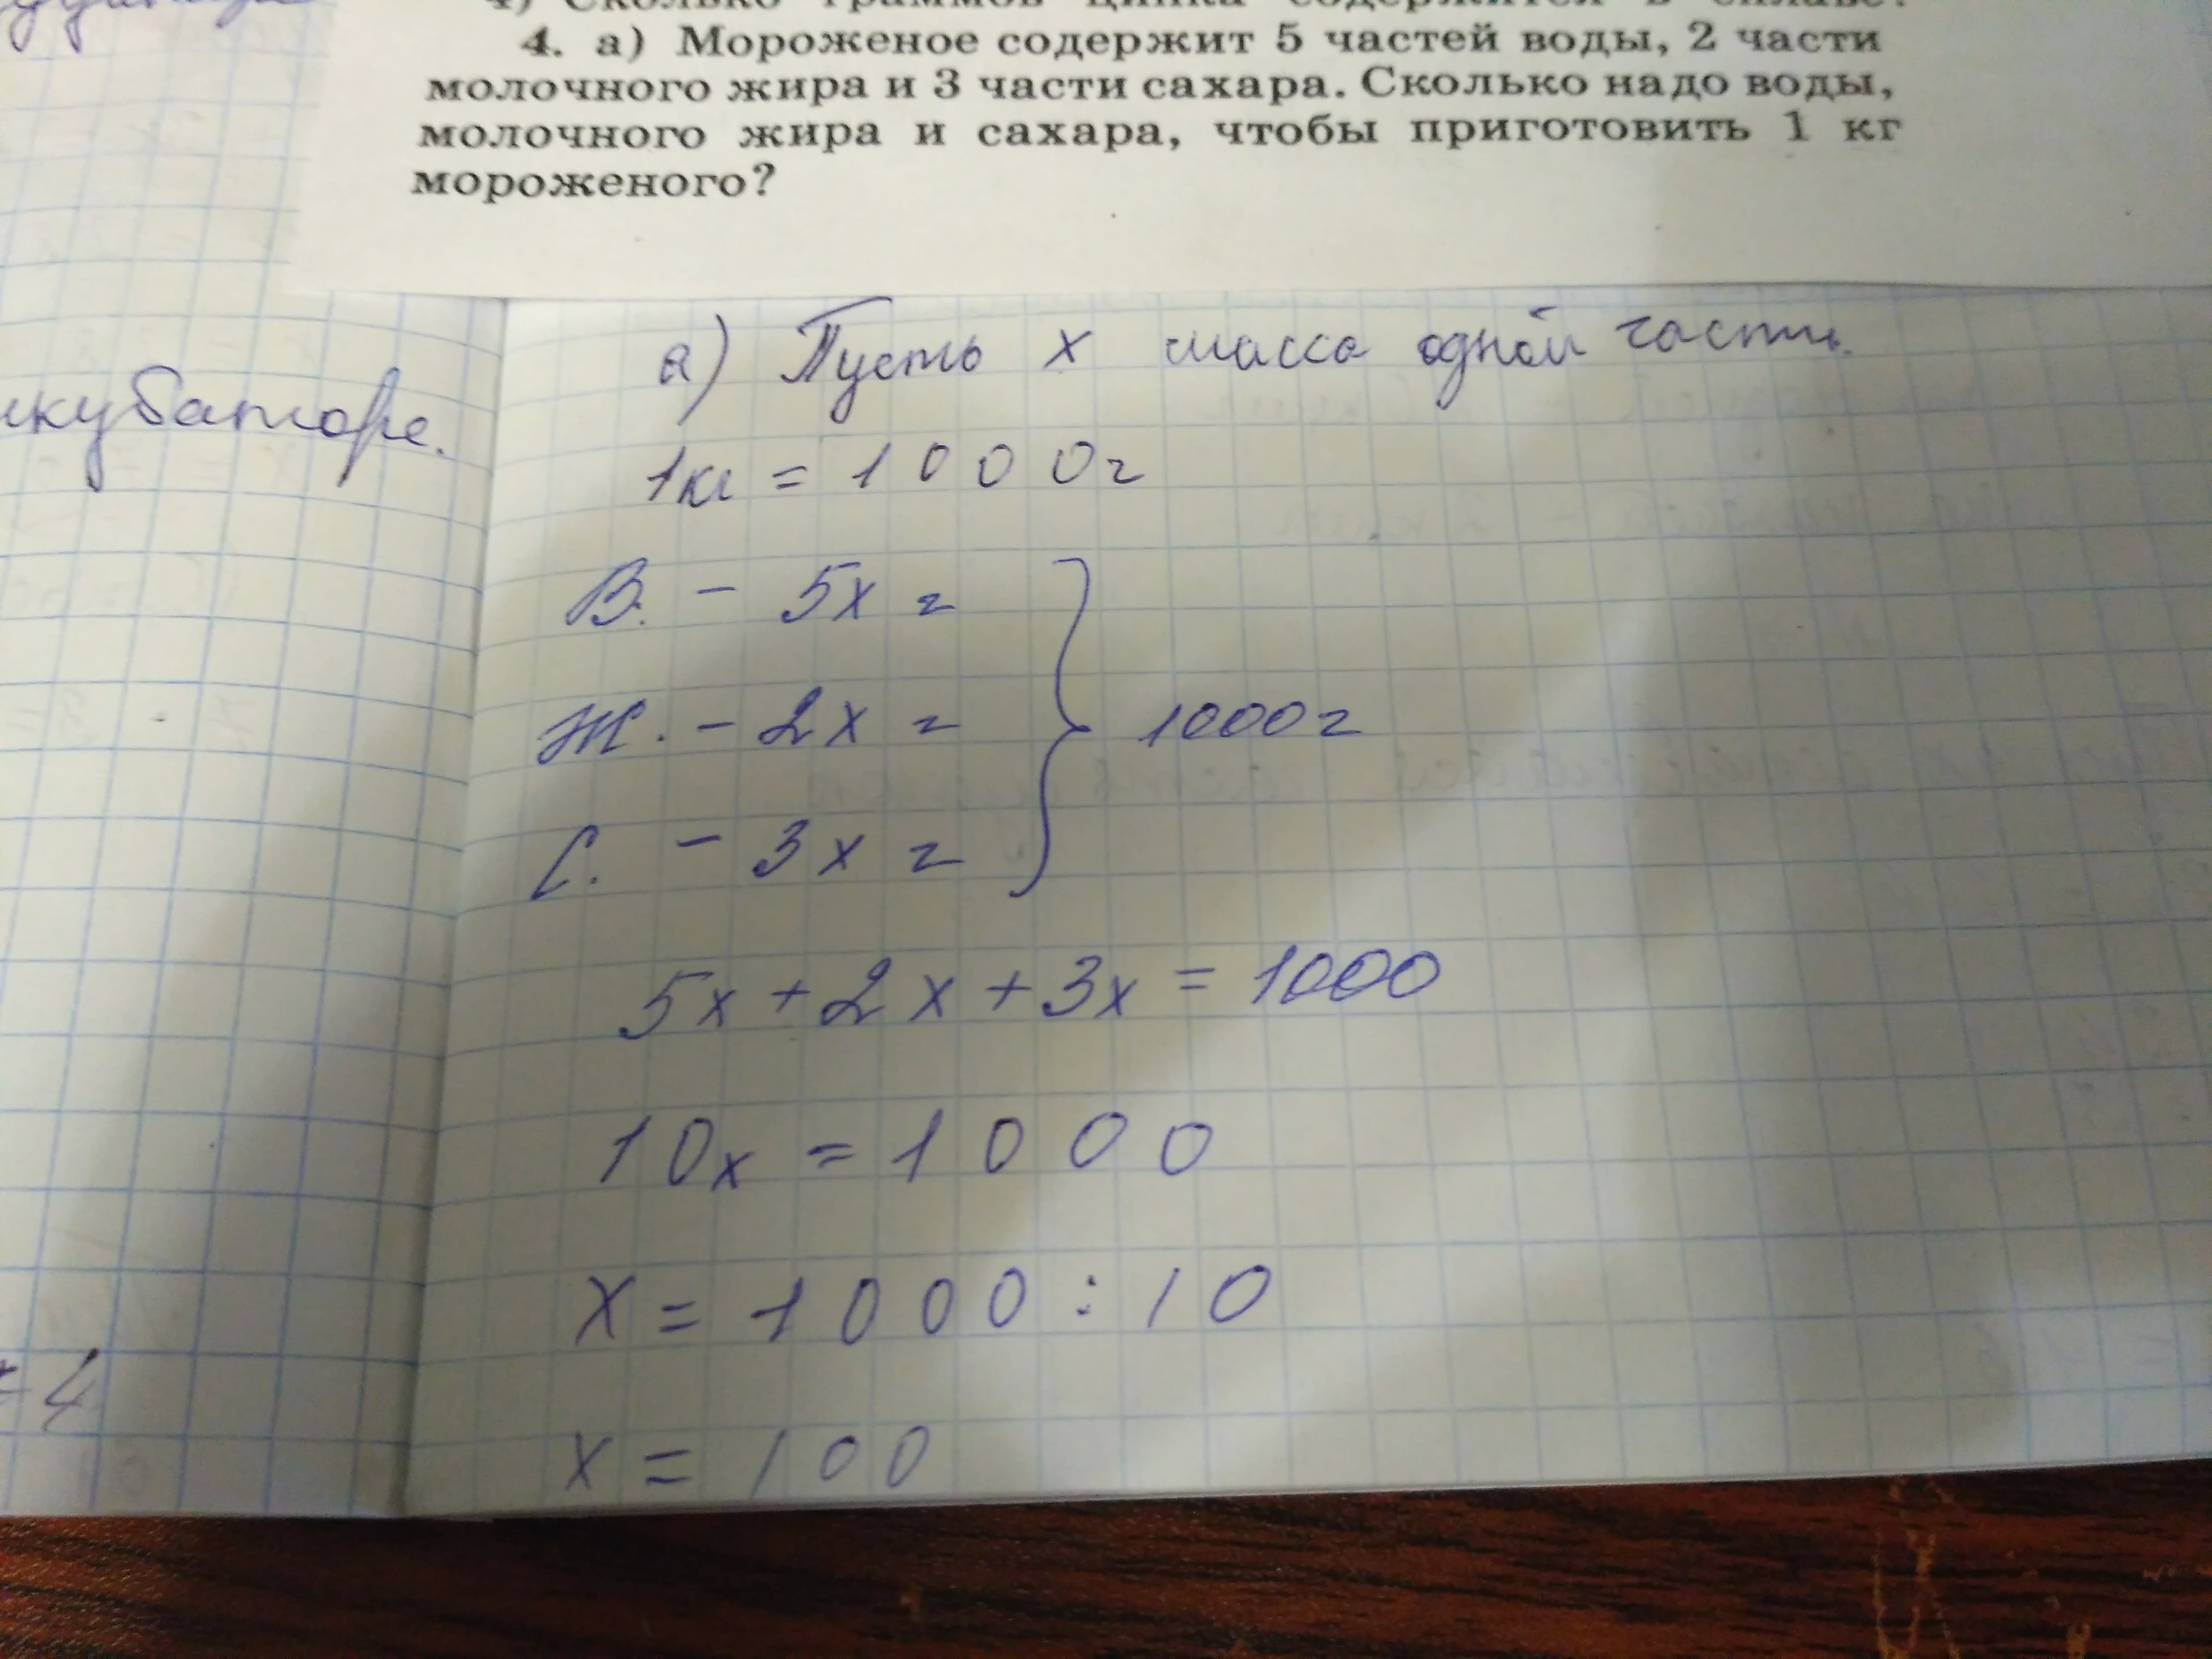 4. а) Мороженое содержит 5 частей воды, 2 части
молочного жира и 3 части сахара. Сколько надо воды,
молочного жира и сахара, чтобы приготовить 1 кг
мороженого?
а) Пусть х масса одной части.
1кг = 1000г
В. - 5х г
Ж. - 2х г
1000г
С. - 3х г
5х + 2х + 3х = 1000
10х = 1000
х = 1000 : 10
х = 100
= 4